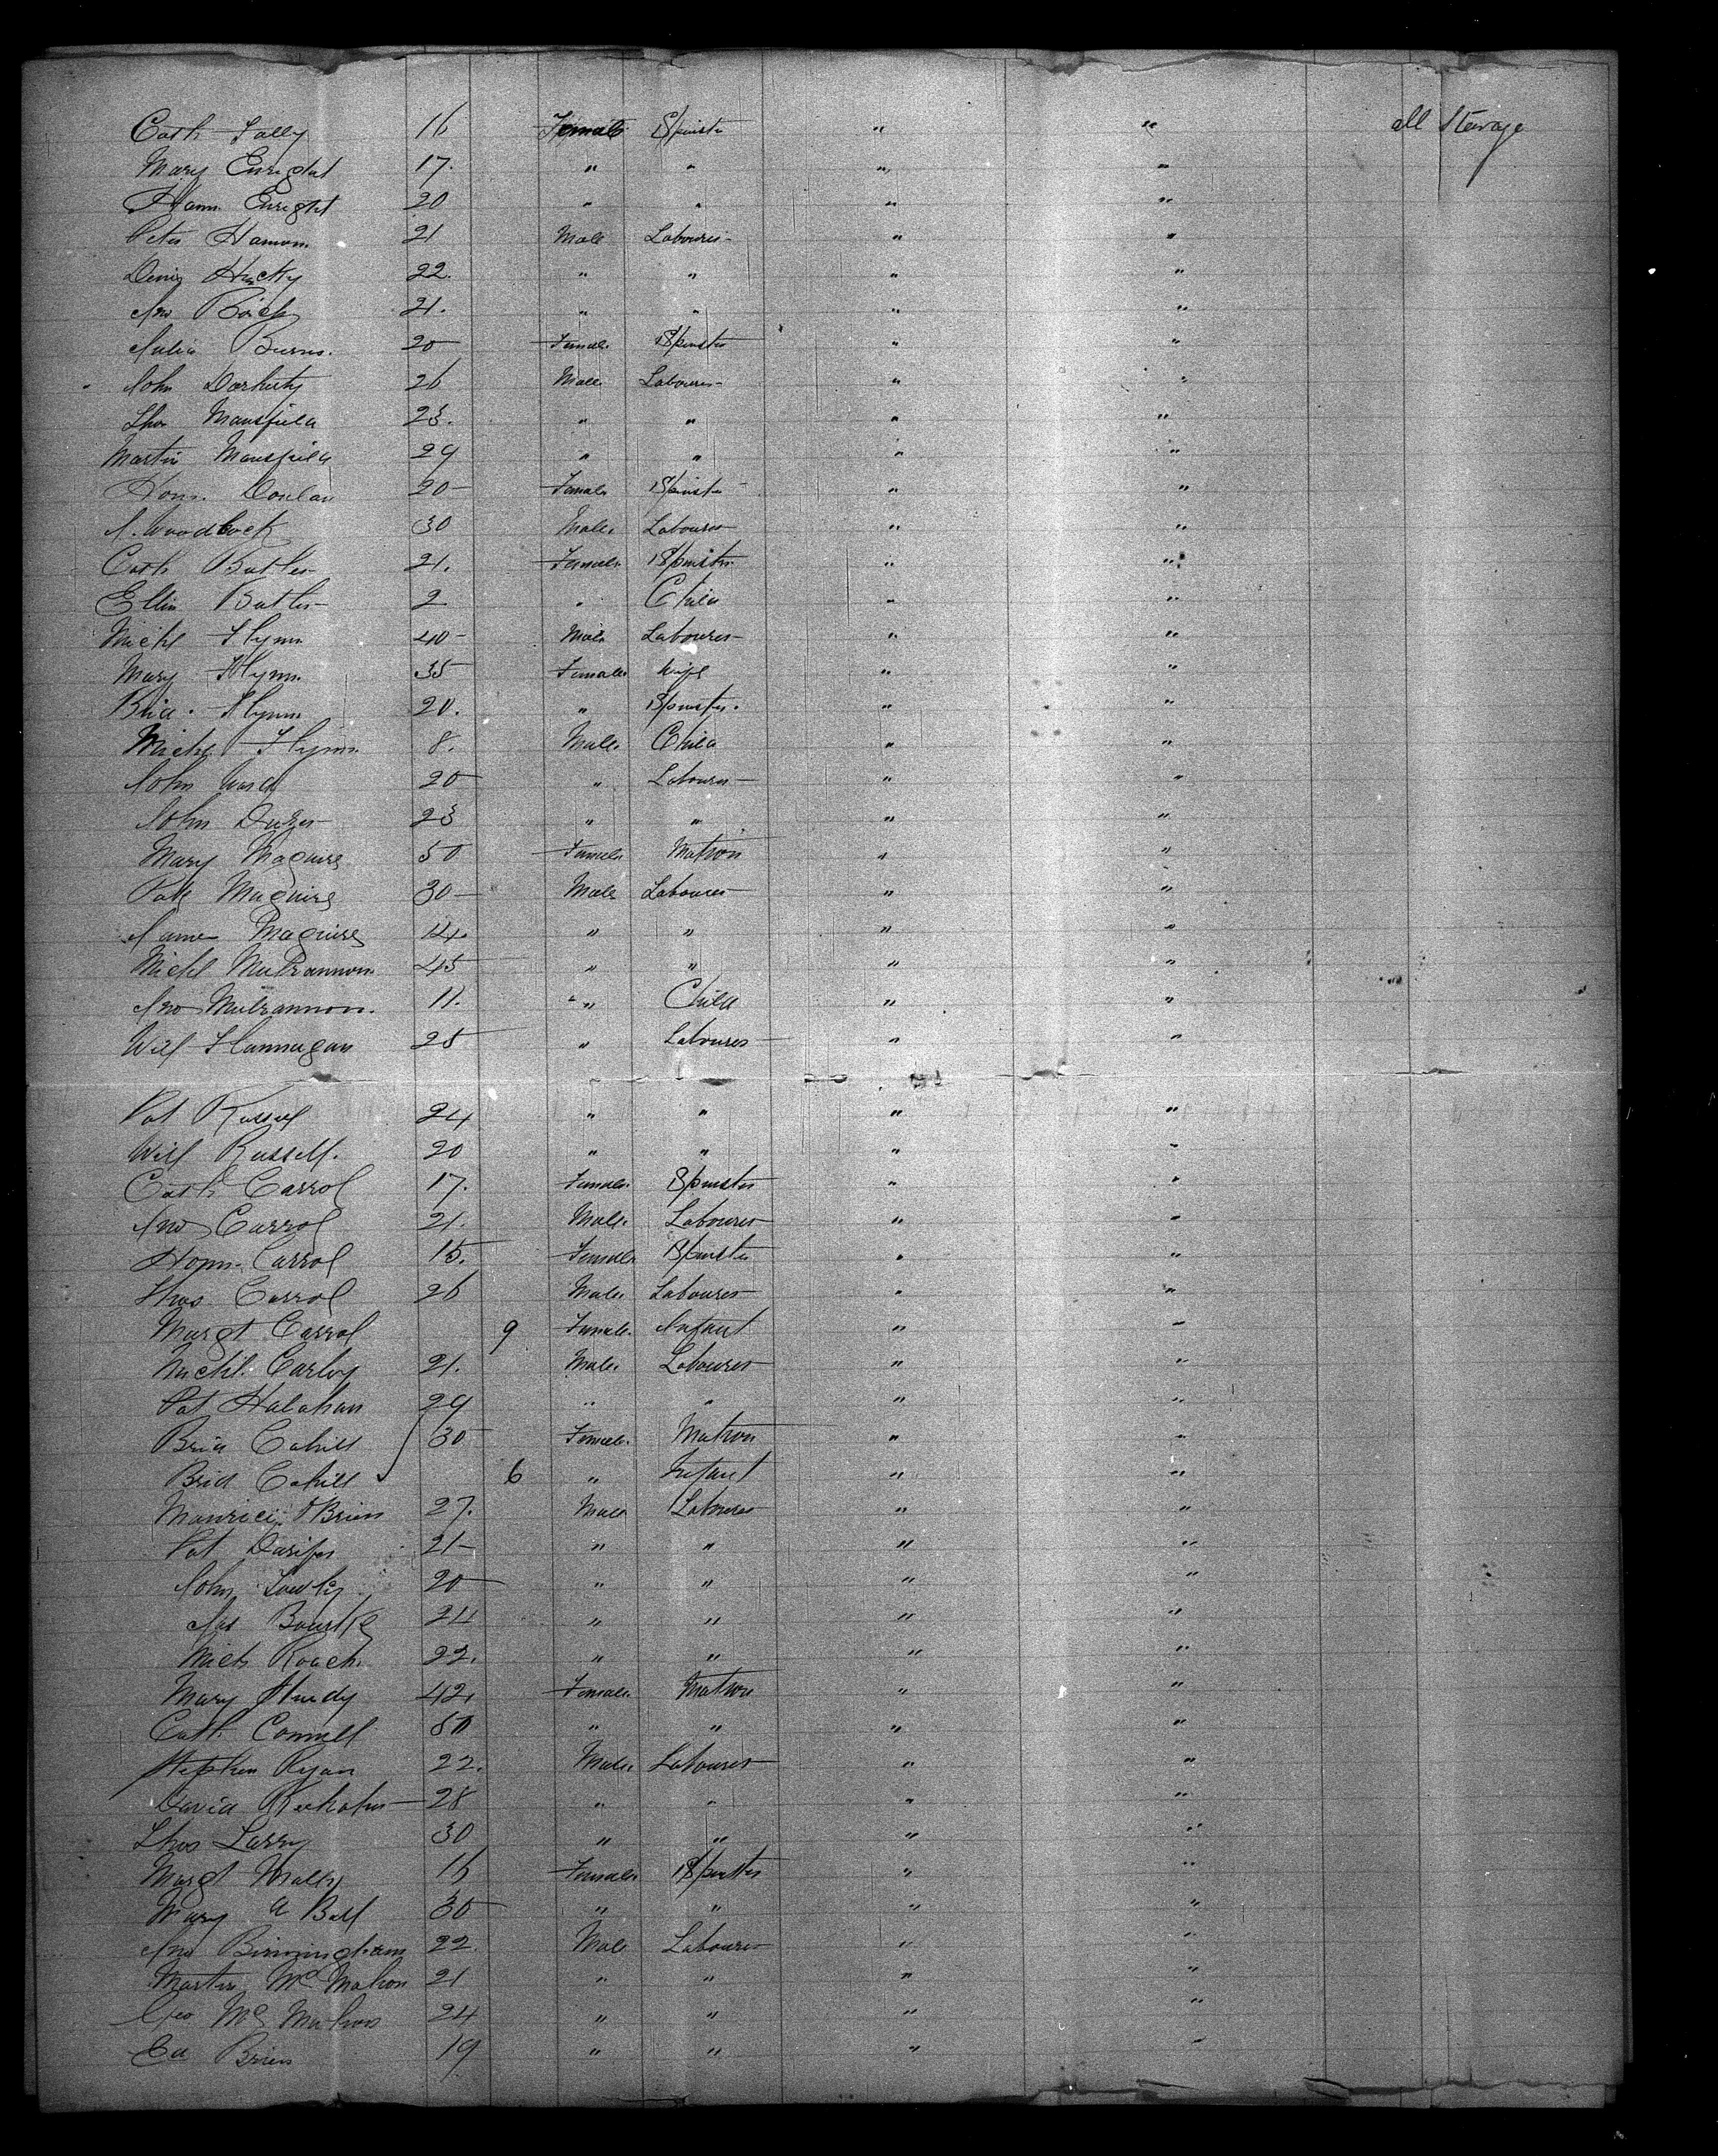 Cath Lally 16 Female Spinster " " all Steerage
Mary Enright 17. " " " "
Hann. Enright 20 " " " "
Peter 21 Male Labourer " "
Denis 22. " " " "
Jno 21. " " " "
Julia Burns. 20 Female Spinster " "
John Dorherty 26 Male Labourer " "
Thos Mansfield 23. " " " "
Martin Mansfield 29 " " " "
Hon. Donlan 20 Female Spinster " "
J. Woodlock 30 Male Labourer " "
Cath Butler 21. Female Spinster " "
Ellen Butler 2 " Child " "
Michl Flynn 40 Male Labourer " "
Mary Flynn 35 Female Wife " "
Brid. Flynn 20. " Spinster. " "
Michl Flynn 8. Male Child " "
John Ward 20 " Labourer " "
John 23 " " " "
Mary Maguire 50 Female Matron " "
Patk Maguire 30 Male Labourer " "
James Maguire 14. " " " "
Michl 45 " " " "
Jno 11. " Child " "
Will Flannagan 25 " Labourer " "
Pat Russel 24 " " " "
Will Russell. 20 " " " "
Cath Carrol 17. Female Spinster " "
Jno Carrol 21. Male Labourer " "
Hon. Carrol 15. Female Spinster " "
Thos. Carrol 26 Male Labourer " "
Margt Carrol 9 Female Infant " "
Michl. 21. Male Labourer " "
Pat Halahan 29 " " " "
Brid Cahill 30 Female Matron " "
Brid Cahill 6 " Infant " "
Maurice O'Brien 27. Male Labourer " "
Pat 21 " " " "
John 20 " " " "
Jas Bourke 24 " " " "
Mich Roach 22. " " " "
Mary 42. Female Matron " "
Cath. Connell 50 " " " "
Stephen Ryan 22. Male Labourer " "
David 28 " " " "
Thos Larry 30 " " " "
Margt Mally 16 Female Spinster " "
Mary A Ball 30 " " " "
Jno Birmingham 22. Male Labourer " "
Martin McMahon 21 " " " "
Geo McMahon 24 " " " "
Ed Brien 19 " " " "